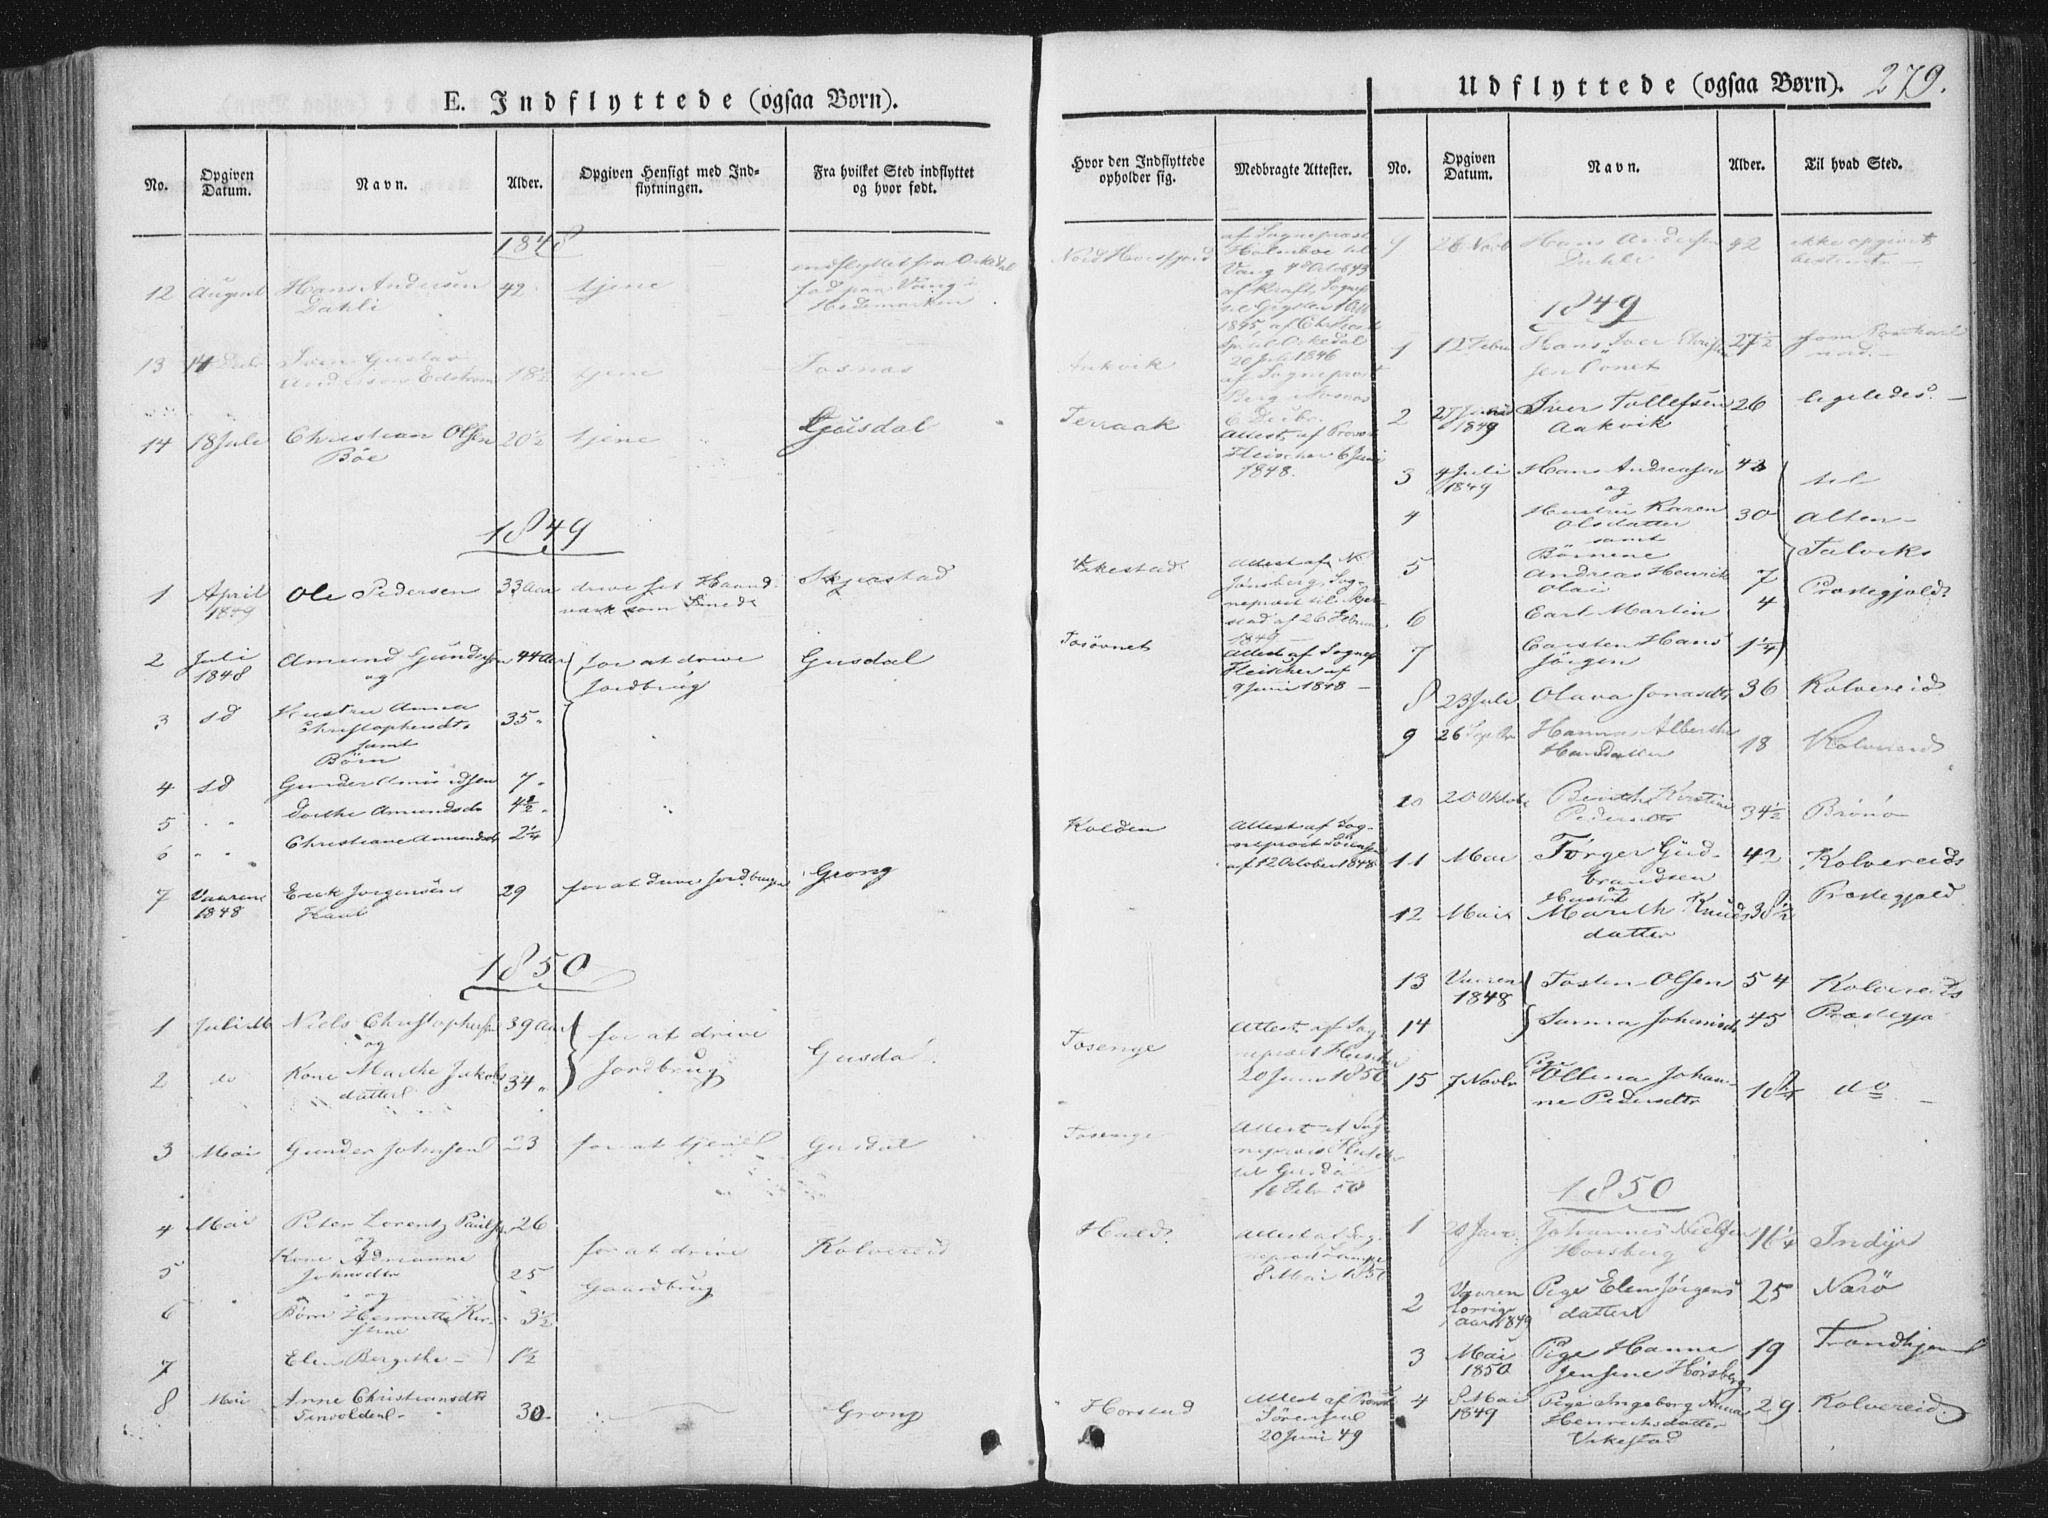 E. Indflyttede (ogsaa Børn).
No.
Opgiven Datum.
Navn.
Alder.
Opgiven Hensigt med Ind-
flytningen.
Fra hvilket Sted indflyttet
og hvor født.
Hvor den Indflyttede
opholder sig.
Medbragte Attester.
1848
12 August Hans Andersen 42 tjene indflyttet fra Orkedal
Dahli
født paa Vang i
Hedemarken
Nord Horsfjord
af Sognepræst
Holmboe til
Vang 4 Octob 43
af Kraft, Sognep
1845, af
Orkedal
20 Juli 1846
13 14 Decbr Sven Gustav
Anderson Edstrøm 18½ tjene Fosnæs
Aakvik
af Sognepræst
Berg i Fosnæs
6 Decbr.
14 18 Juli Christian Olsen 20½ tjene Gausdal
Böe
Terraak
Attest, af Provst
Fleischer 6 Juni
1848.
1849
1 April Ole Pedersen 33 Aar drive sit Haand- Skjerstad
1849
værk som Smed
Vikestad
Attest af N.
Jönsberg, Sog-
nepræst til Skjer-
stad af 26 Februar
1849
2 Juli Amund Gundersen 44 Aar for at drive Gusdal
1848 og Jordbrug
Tosövnet
Attest af Sognep
Fleischer af
9 Juni 1848
3 sd Hustru Anna 35 "
Christophersdtr
samt
Börn
4 sd Gunder Amundsen 7 "
5 " " Dorthe Amundsdr 4½ "
6 " " Christiane Amundsdr 2¼
7 Vaaren Erik Jørgensen 29 for at drive Jordbrug Grong
1848
Kolden
Attest af Sog-
nepræst Sörensen
af 12 October 1848
1850
1 Niels Christophersen 39 Aar for at drive
og Jordbrug Gusdal.
2 do Kone Marthe Jakobs 34 "
datter
Tosenge
Attest af Sog
nepræst Fleischer
20 Juni 1850
3 Mai Gunder Johnsen 23 for at tjene Gusdal
Tosenge
Attest af Sog
nepræst Fleischer
til Gusdal
16 Febr 50
4 Mai Peter Lorentz Paulsen 26
og
5 Kone Adrianne for at drive Kolvereid
Johnsdtr 25
og Gaardbrug
6 Börn Henriette Kir- 3½
stine
7 Elen Bergithe 1½
Hald
Attest af Sog
nepræst
8 Mai 1850
8 Mai Anne Christiansdtr
30 Grong
Horstad
Attest af Provst
Sörensen
20 Juni 49
Udflyttede (ogsaa Børn). 279.
No.
Opgiven Datum.
Navn.
Alder.
Til hvad Sted.
9 28 Novb Hans Andersen 42 ikke opgivet
Dahli bestemt
1849
1 12 Febr Hans Iver 27½
nord
2 27 1849 Iver Tollefsen 26 ligeledes.
Aakvik
3 4 Juli Hans Andreasen 42 til
1849 og
4 Hustru Karen 30 Alten-
Olsdatter
samt
Börnene Talviks
5 Andreas Henrik 7
Olai Præstegjeld
6 Carl Martin 4
7 Carsten Hans 1¼
Jörgen
8 23 Juli Olava Jonasdtr 36 Kolvereid
9 26 Septbr Hanna Alberthe
Hansdatter 18 Kolvereid
10 20 Oktobr Kirstine 34½ Brønø
Pedersdtr
11 Mai Törger Gud- 42 Kolvereids
brandsen
og
Hustru Præstegjeld
12 Mai Marith Knuds 38½
datter
13 Vaaren Tosten Olsen 54 Kolvereids
1848
14 Johanisdr 45 Præstegj
15 7 Novbr Pige Ollena Johan- do
ne Pedersdtr
1850
1 20 Janr Johannes Nielsen 16¼ Inderø
Horsberg
2 Vaaren Pige Elen Jørgens 25 Nærø
forrige datter
aar 1849
3 Mai Pige Hanne 19 Trondhjem
1850 Jensine Horsberg
4 8 Mai Pige Ingeborg Anna 29 Kolvereid.
1849 Henrichsdatter
Vikestad